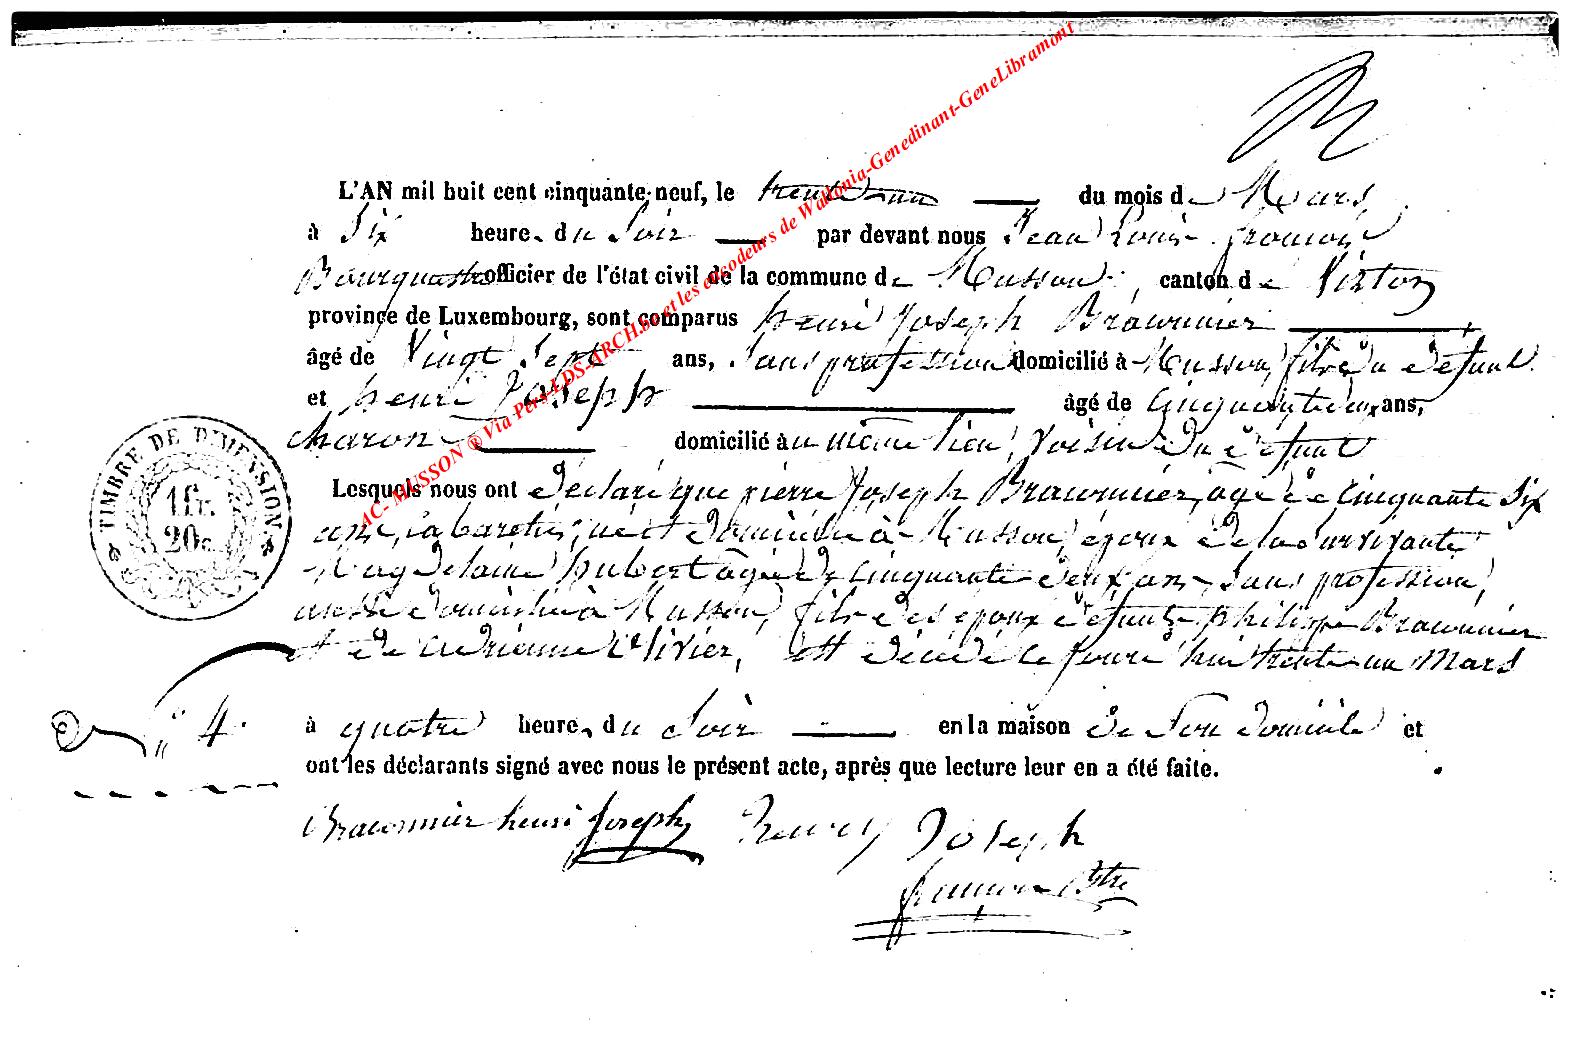 L'AN mil huit cent cinquante-neuf, le trente un du mois de Mars,
à Six heure. du Soir par devant nous Jean Louis
officier de l'état civil de la commune de Musson, canton de Virton
province de Luxembourg, sont comparus henri Joseph Braconnier
âgé de Vingt Sept ans, Sans profession domicilié à Musson, fils du défunt.
et henri Joseph âgé de Cinquante deux ans,
charon domicilié au même lieu, voisin du défunt
Lesquels nous ont déclaré que pierre Joseph Braconnier, âgé de Cinquante Six
ans, cabaretier, né et domicilié à Musson, époux de la Survivante
Magdelaine hubert âgée de Cinquante deux ans, Sans profession,
aussi domiciliée à Musson, fils des époux défunts philippe Braconnier
et de Adrienne Olivier, est décédé ce jourd'hui trente un Mars
N° 4.
à quatre heure. du Soir en la maison de Son domicile et
ont les déclarants signé avec nous le présent acte, après que lecture leur en a été faite.
Braconnier henri Joseph henry Joseph
TIMBRE DE DIMENSION
1 fr.
20 c.
AC- MUSSON ® Via Pers-LDS-ARCH.be et les encodeurs de Wallonia-Genedinant-GeneLibramont